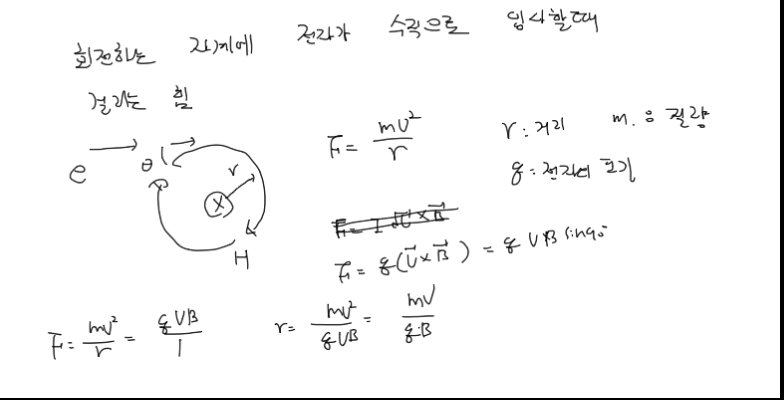 회전하는 자계에 전자가 수직으로 입사할때
걸리는 힘
e → θ r ⊗ H
F = mv²/r
r : 거리 m. : 질량
q : 전자의 크기
F = q(v⃗ × B⃗) = q v B sin90°
F = mv²/r = qvB/1
r = mv²/qvB = mv/q·B